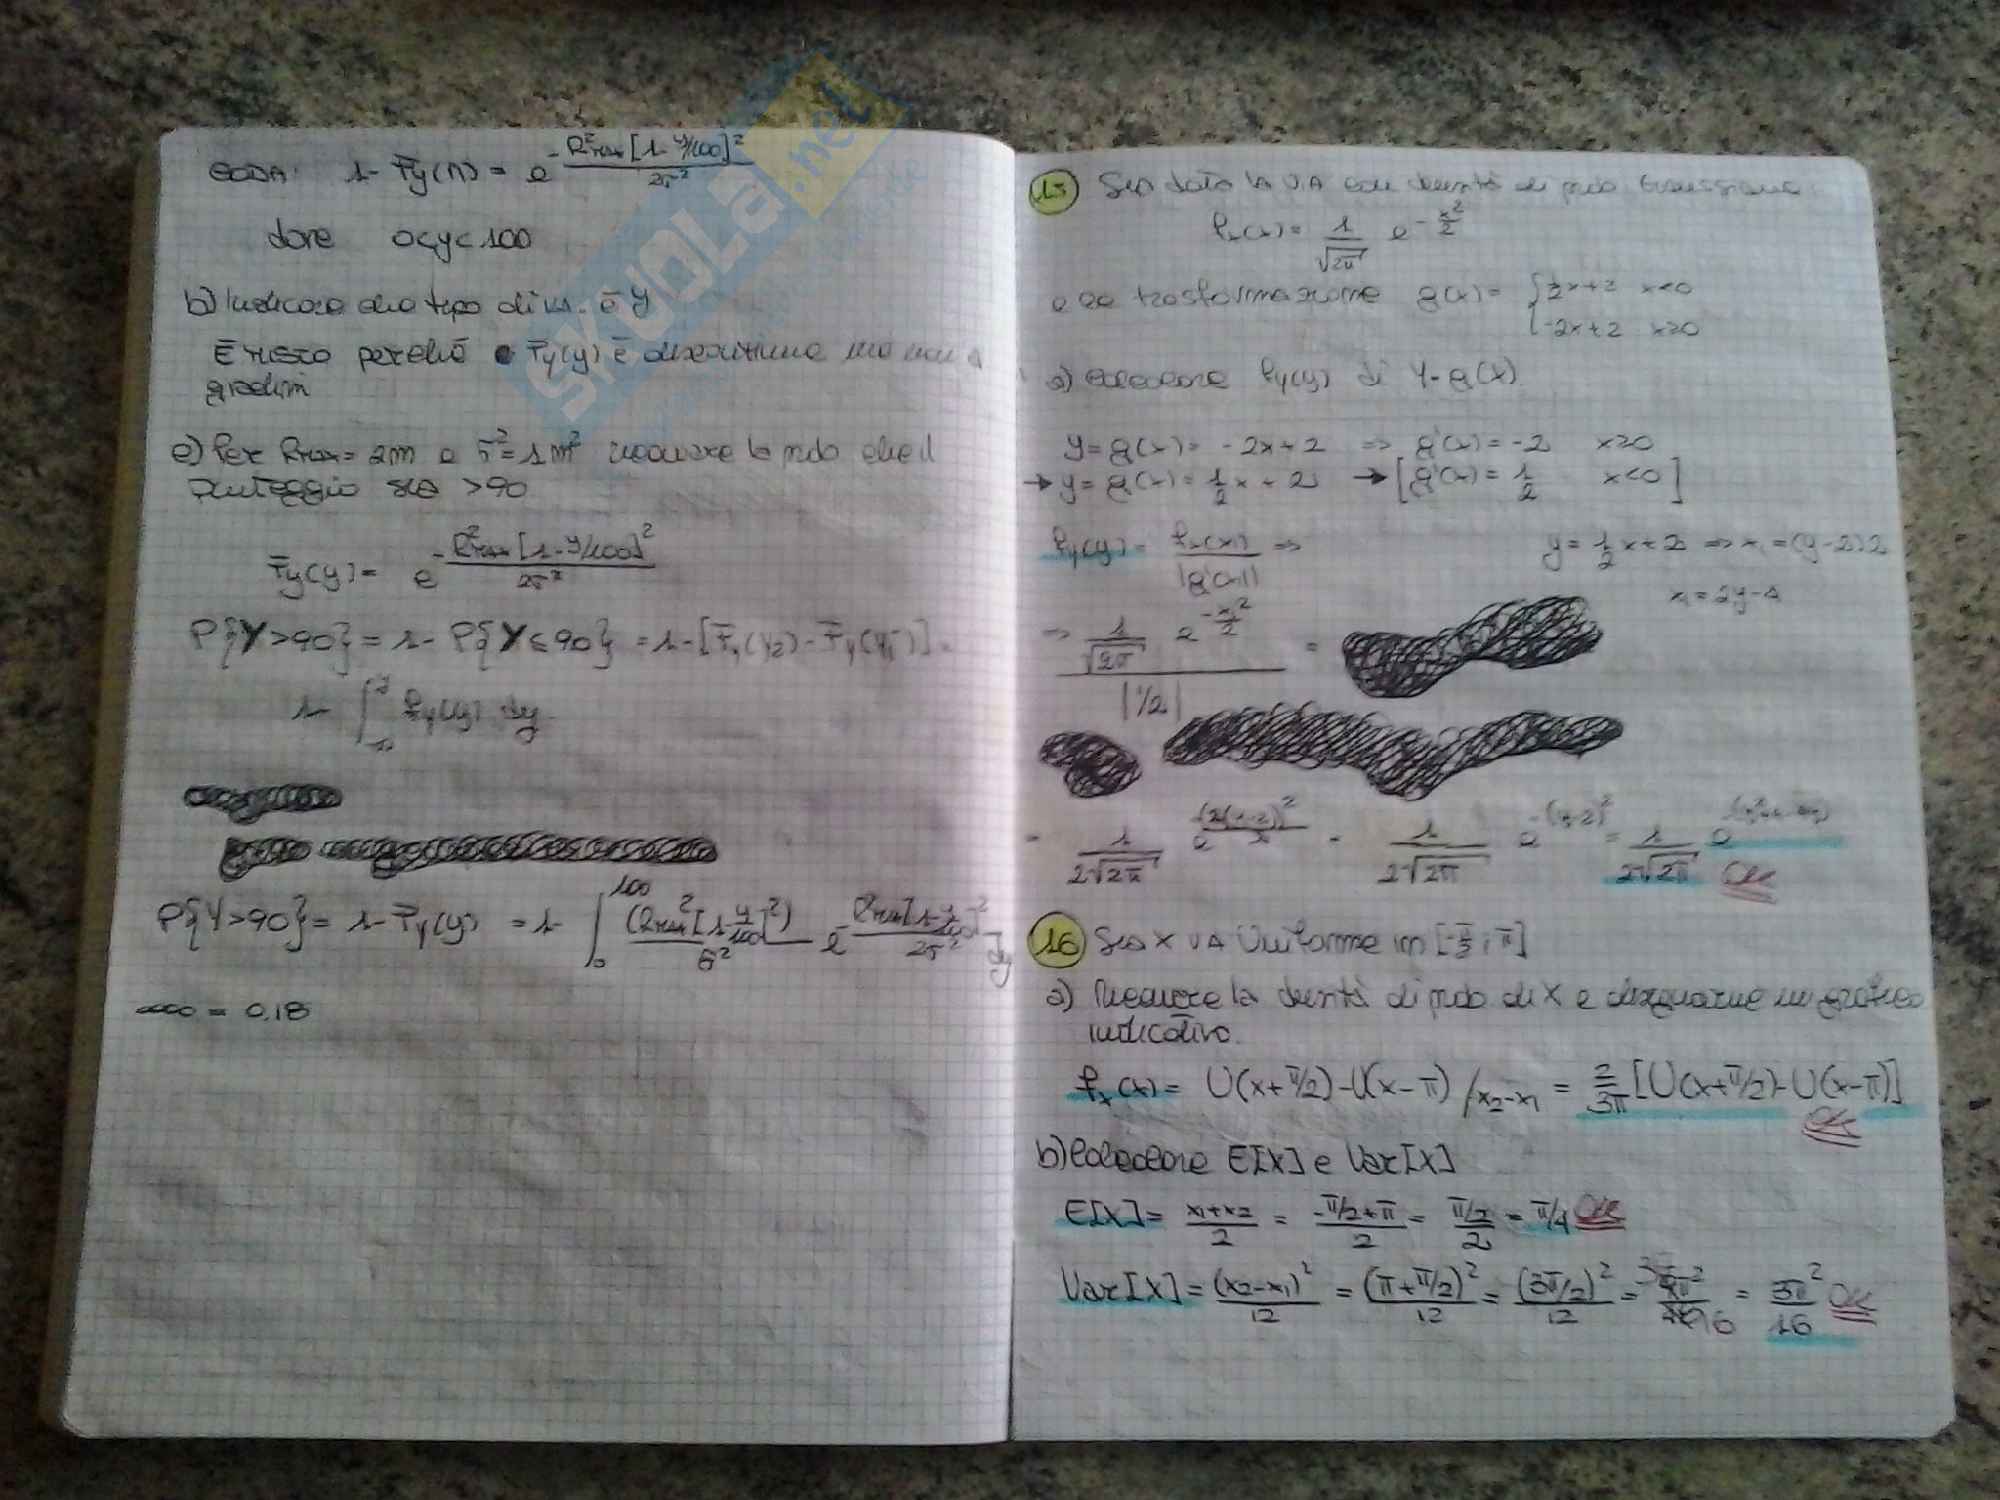 CODA: 1- Fy(n) = e^-R²max[1-y/100]²/2σ²
dove 0<y<100
b) Indicare che tipo di v.a. è Y
È mista perché Fy(y) è discontinua ma non a
gradini
c) Per Rmax = 2m e σ²=1m² ricavare la prob che il
punteggio sia >90
Fy(y) = e^-R²max[1-y/100]²/2σ²
P{Y>90} = 1- P{Y≤90} = 1-[Fy(y2)-Fy(y1⁻)] =
1- ∫ fy(y) dy
P{Y>90} = 1-Fy(y) = 1- ∫₀¹⁰⁰ (Rmax²[1-y/100]²)/σ² e^-Rmax[1-y/100]²/2σ² dy
= 0,18
SKUOLA.net
15 Sia data la V.A con densità di prob Gaussiana:
fx(x) = 1/√2π e^-x²/2
e la trasformazione g(x) = { 1/2x+2 x<0
-2x+2 x≥0
a) Calcolare fy(y) di Y=g(X)
y=g(x) = -2x+2 => g'(x)=-2 x≥0
→ y=g(x) = 1/2x + 2 → [g'(x) = 1/2 x<0]
fy(y) = fx(x1)/|g'(x1)| => y = 1/2x+2 => x1=(y-2)2
x1=2y-4
=> 1/√2π e^-x1²/2 / |1/2| =
= 1/2√2π e^-(2(y-2))²/2 = 1/2√2π e^-(y-2)² = 1/2√2π e OK
16 Sia X VA Uniforme in [-π/2; π]
a) Ricavare la densità di prob di X e disegnarne un grafico
indicativo.
fx(x) = U(x+π/2)-U(x-π) /x2-x1 = 2/3π [U(x+π/2)-U(x-π)]
OK
b) Calcolare E[X] e Var[X]
E[X] = x1+x2/2 = -π/2+π/2 = π/2/2 = π/4 OK
Var[X] = (x2-x1)²/12 = (π+π/2)²/12 = (3π/2)²/12 = = 3π²/16 OK